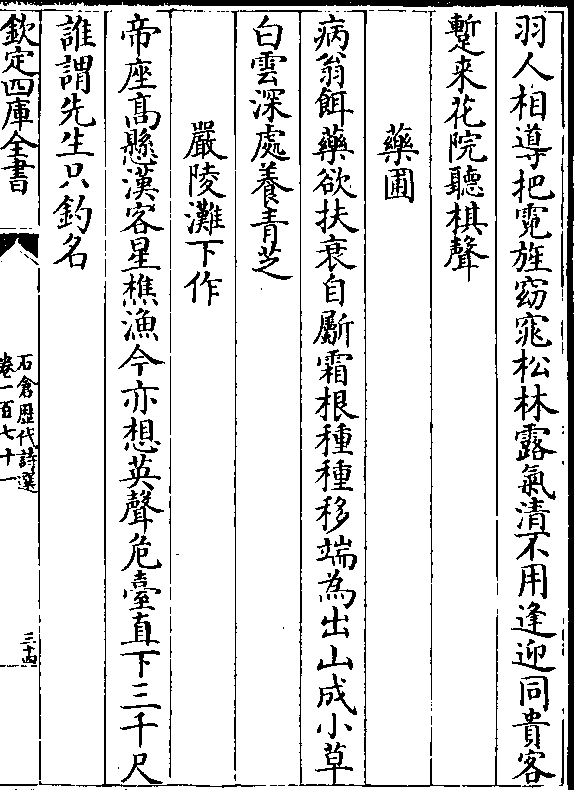 羽人相導把霓旌窈窕松林露氣清不用逢迎同貴客
蹔来花院聽棋聲
藥圃
病翁餌藥欲扶衰自斸霜根種種移端為出山成小草
白雲深處養青芝
嚴陵灘下作
帝座髙懸漢客星樵漁今亦想英聲危臺直下三千尺
誰謂先生只釣名
欽定四庫全書
石倉歴代詩選
卷一百七十一
三十四